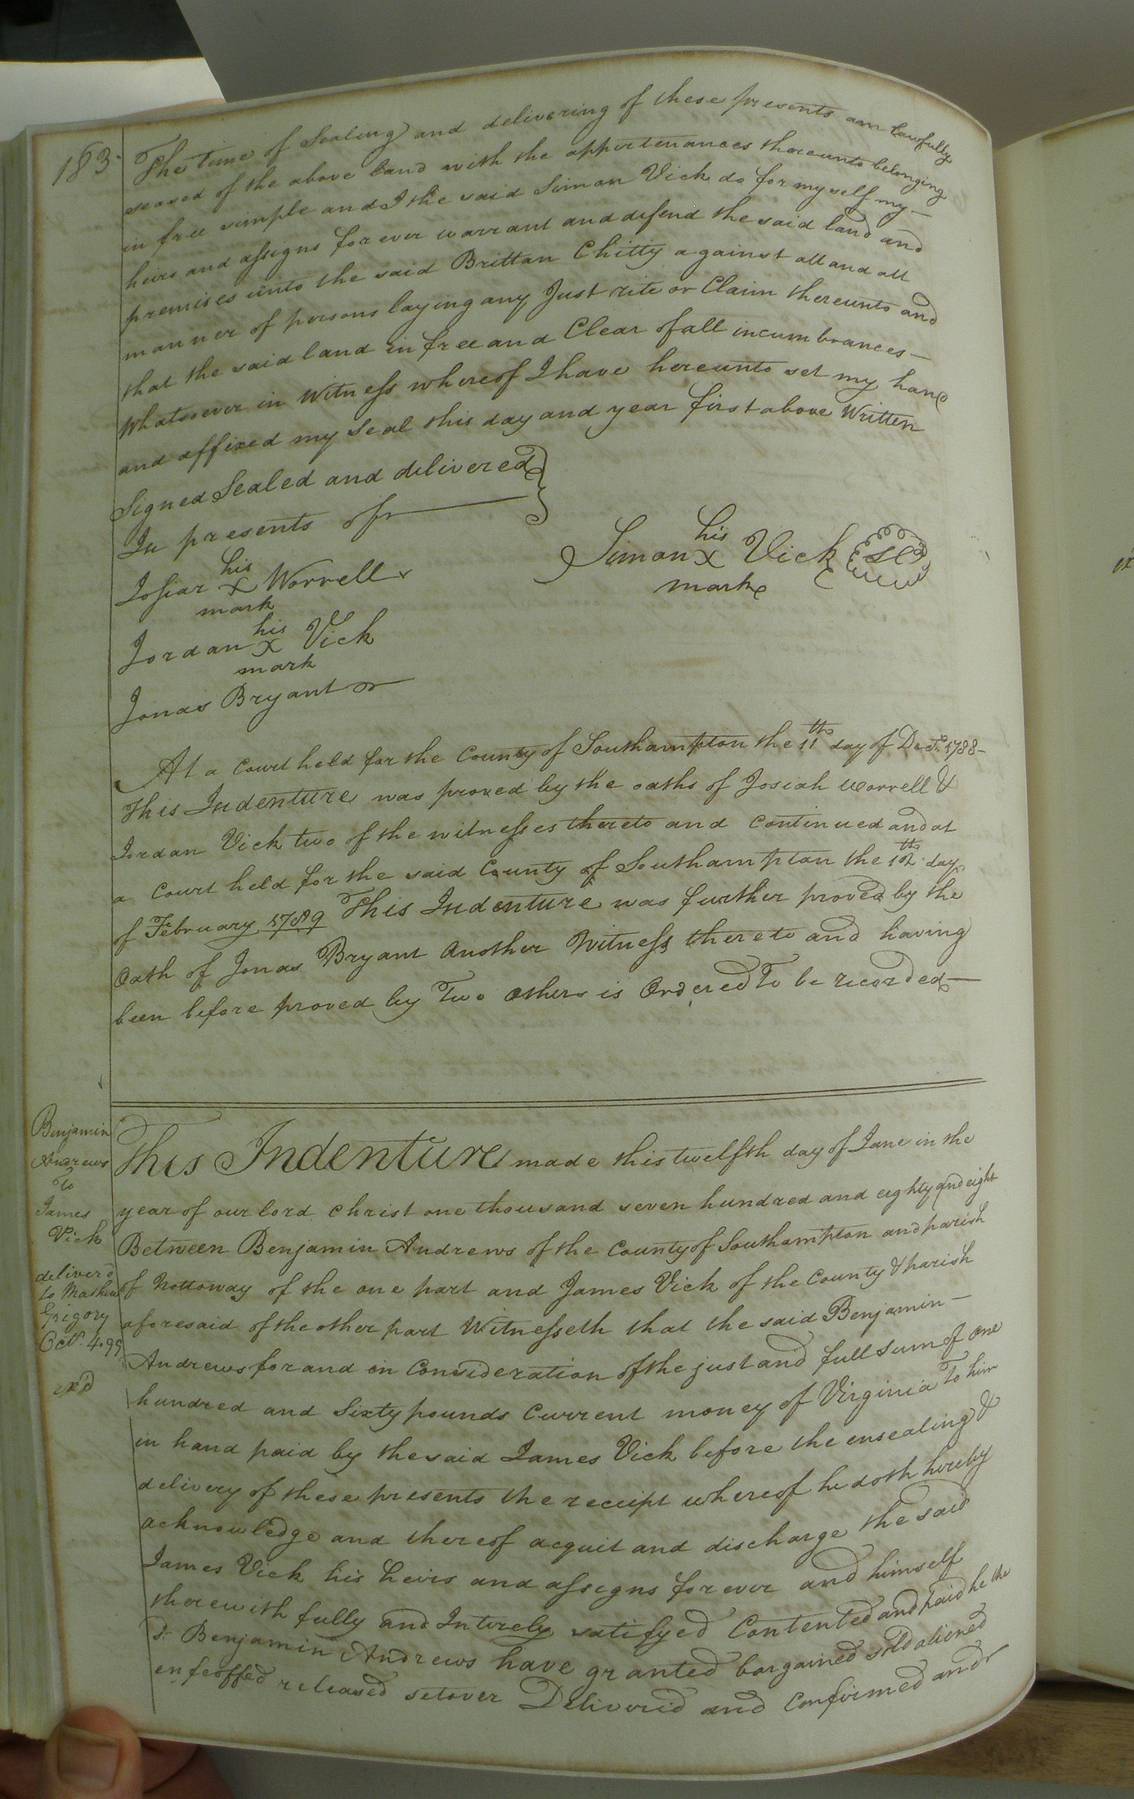 183
The time of Sealing and delivering of these presents am lawfully
seased of the above land with the appertenances thereunto belonging
in free simple and I the said Simon Vick do for myself my
heirs and assigns forever warrant and defend the said land and
premises unto the said Brittan Chitty against all and all
manner of persons laying any Just rite or Claim thereunto and
that the said land in free and Clear of all incumbrances
Whatsoever in Witness whereof I have hereunto set my hand
and affixed my seal this day and year first above Written
Signed Sealed and delivered
In presents of
Josiar his X mark Worrell
Simon his X mark Vick
Jordan his X mark Vick
Jonas Bryant
At a Court held for the County of Southampton the 11th day of Decr. 1788
This Indenture was proved by the oaths of Josiah Worrell &
Jordan Vick two of the witnesses thereto and Continued and at
a Court held for the said County of Southampton the 12th day
of February 1789 This Indenture was further proved by the
Oath of Jonas Bryant Another Witness thereto and having
been before proved by Two others is Ordered To be recorded
Benjamin
Andrews
To
James
Vick
deliver'd
to Mathew
Grigory
Octr. 4. 99
exd
This Indenture made this twelfth day of June in the
year of our lord Christ one thousand seven hundred and eighty and eight
Between Benjamin Andrews of the County of Southampton and parish
of Nottoway of the one part and James Vick of the County & parish
aforesaid of the other part Witnesseth that the said Benjamin
Andrews for and in Consideration of the just and full sum of one
hundred and Sixty pounds Current money of Virginia To him
in hand paid by the said James Vick before the ensealing &
delivery of these presents the receipt whereof he doth hereby
acknowledge and thereof acquit and discharge the said
James Vick his heirs and assigns forever and himself
therewith fully and Intirely satisfyed Contented and paid he the
Sd. Benjamin Andrews have granted bargained sold aliened
enfeoffed released setover Deliver'd and Confirmed and